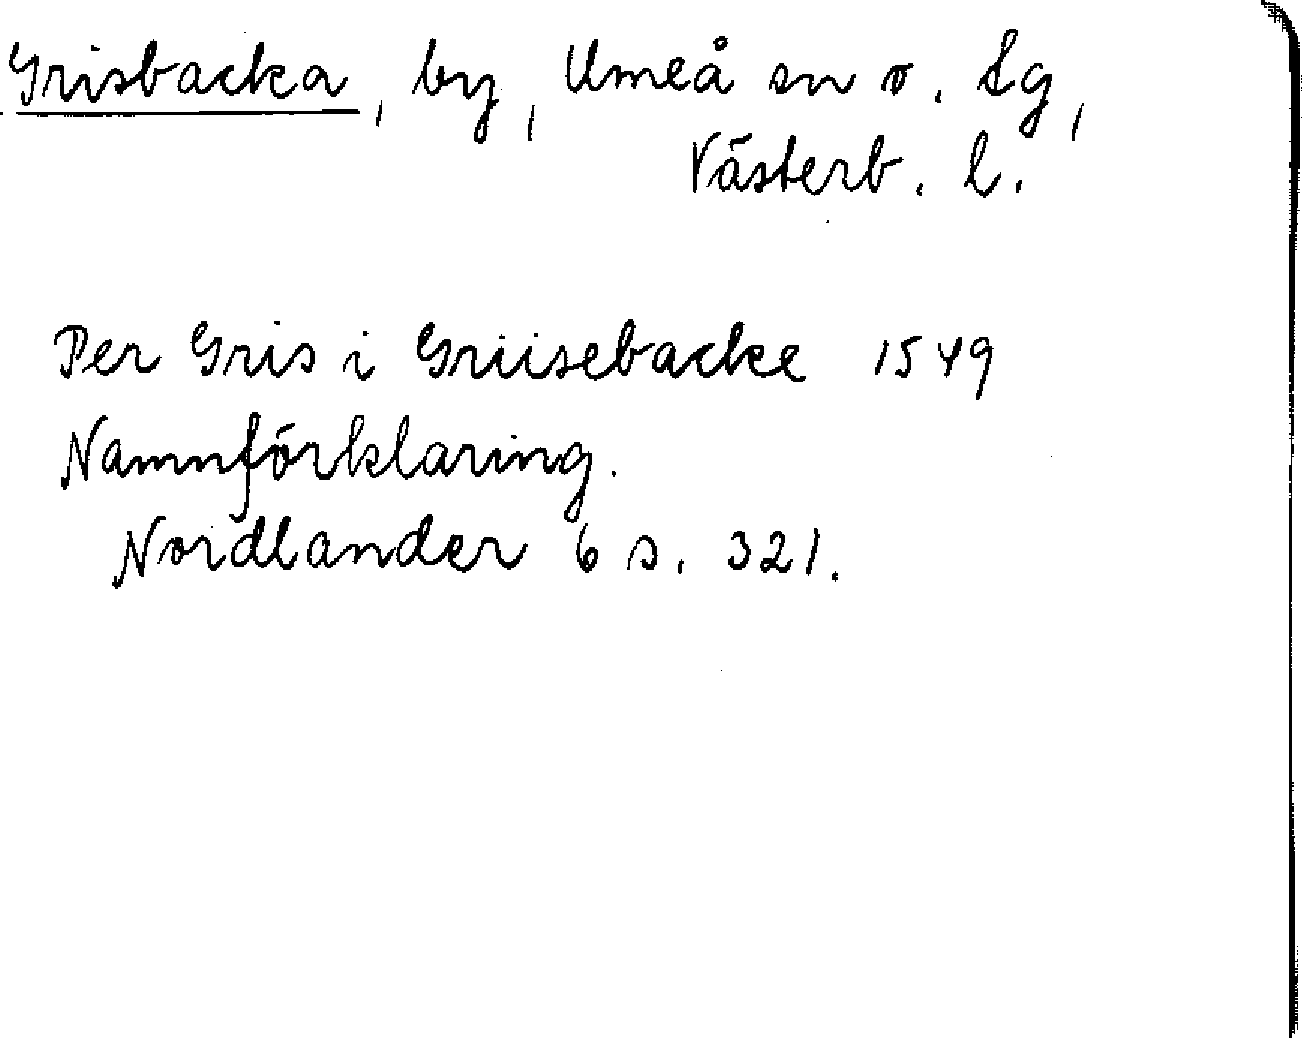 Grisbacka, by, Umeå sn o. tg,
Västerb. l.
Per Gris i Griisebacke 1549
Namnförklaring.
Nordlander 6 s. 321.